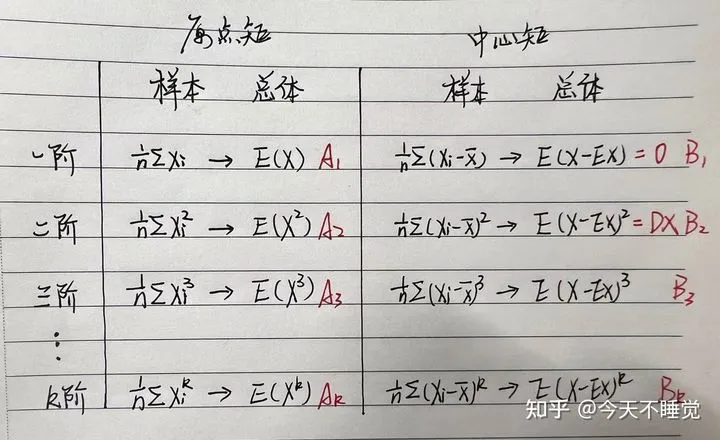 原点矩 中心矩
样本 总体 样本 总体
一阶 1/n ΣXi → E(X) A₁ 1/n Σ(Xi-X̄) → E(X-EX) = 0 B₁
二阶 1/n ΣXi² → E(X²) A₂ 1/n Σ(Xi-X̄)² → E(X-EX)² = DX B₂
三阶 1/n ΣXi³ → E(X³) A₃ 1/n Σ(Xi-X̄)³ → E(X-EX)³ B₃
⋮
k阶 1/n ΣXiᵏ → E(Xᵏ) Aₖ 1/n Σ(Xi-X̄)ᵏ → E(X-EX)ᵏ Bₖ
知乎 @今天不睡觉